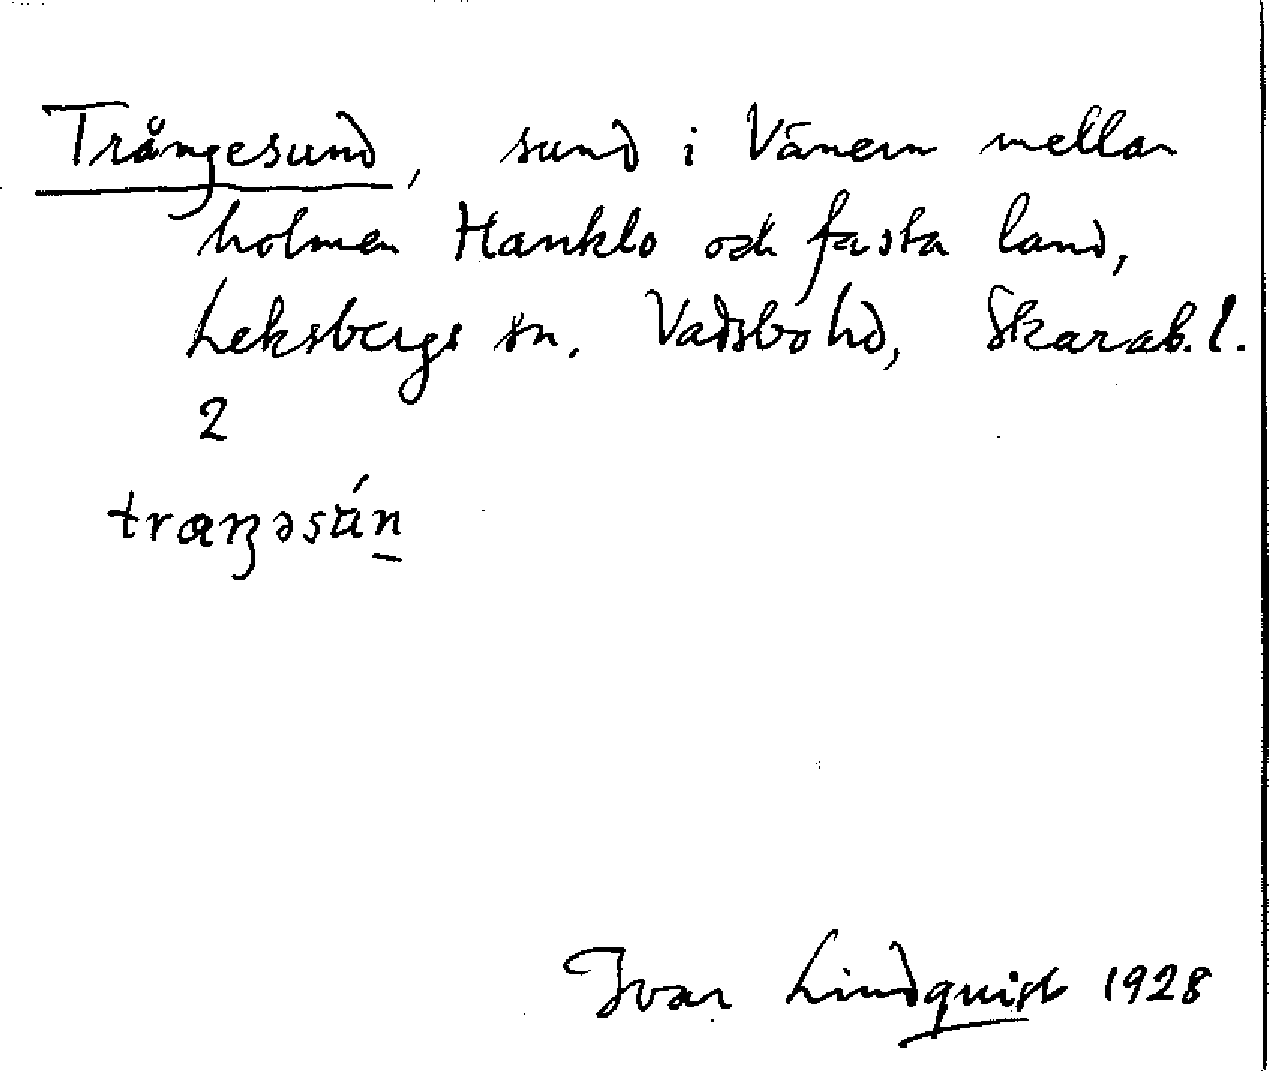 Trångesund, sund i Vänern mellan
holmen Hanklo och fasta land,
Leksbergs sn. Vadsbo hd, Skarab. l.
2
Ivar Lindquist 1928